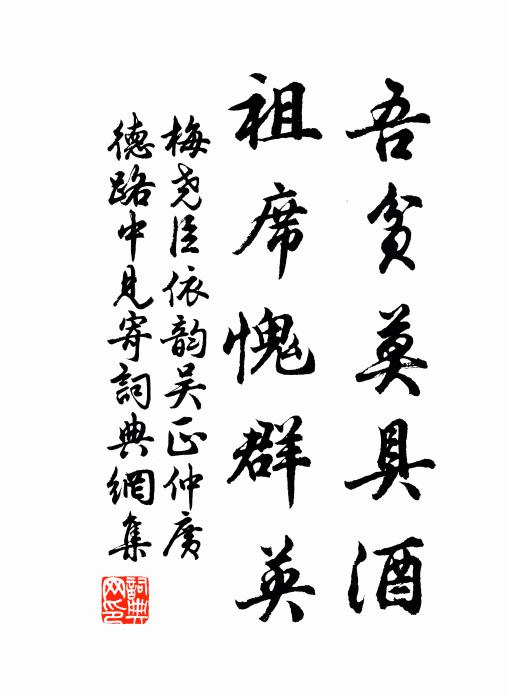 吾貧莫具酒
祖席愧群英
梅尧臣依韵吴正仲廣
德路中見寄詞典網集
詞典網印